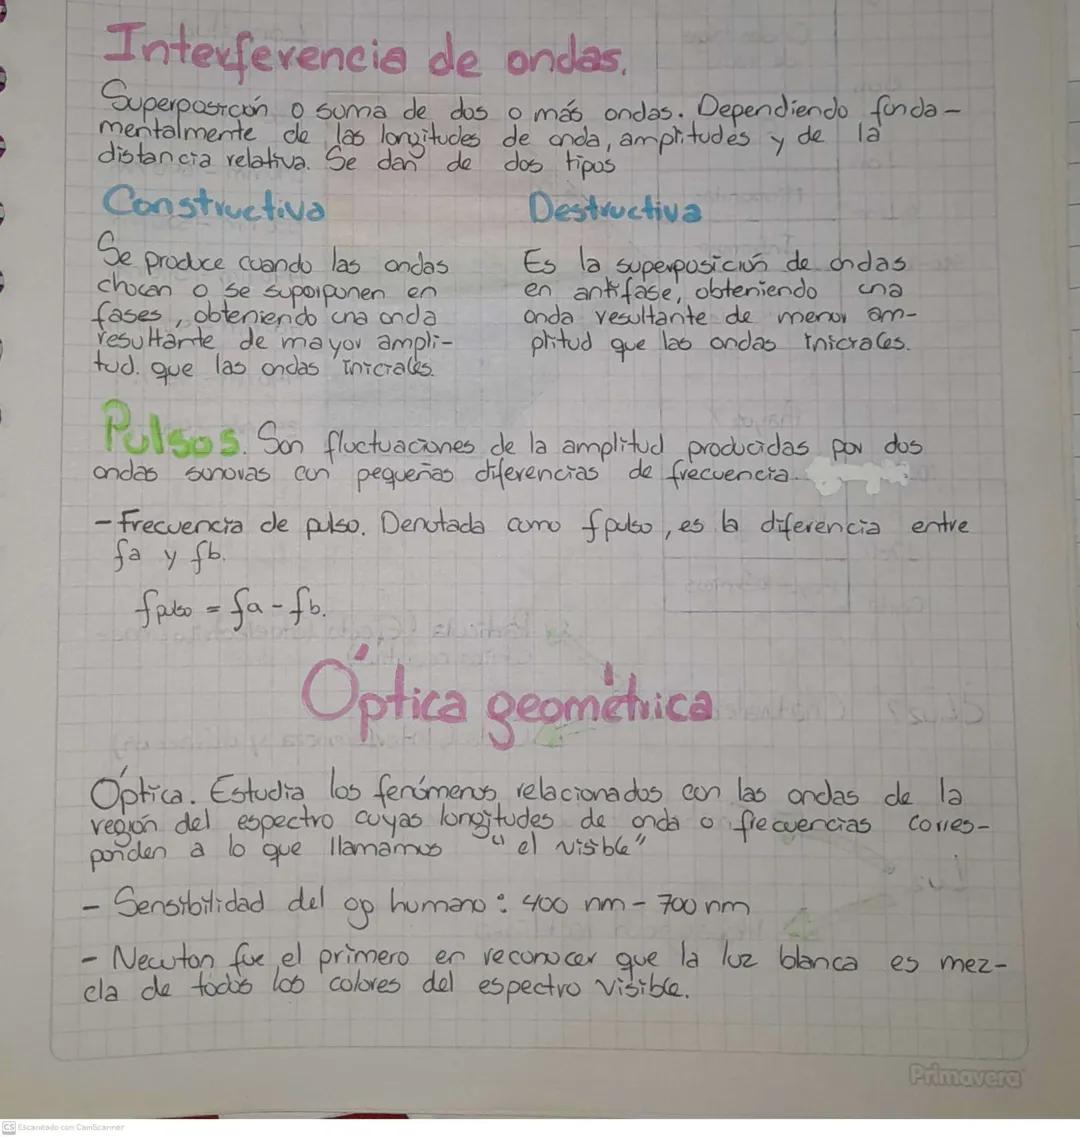 Interferencia de ondas.
Superposición o suma de dos o más ondas. Dependiendo funda-
mentalmente de las longitudes de onda, amplitudes y de la
distancia relativa. Se dan de dos tipos
Constructiva
Se produce cuando las ondas
chocan o se superponen en
fases, obteniendo una onda
resultante de mayor ampli-
tud. que las ondas iniciales.
Destructiva
Es la superposición de ondas
en antifase, obteniendo una
onda resultante de menor am-
plitud que las ondas iniciales.
Pulsos. Son fluctuaciones de la amplitud producidas por dos
ondas sonoras con pequeñas diferencias de frecuencia.
- Frecuencia de pulso. Denotada como fpulso, es la diferencia entre
fa y fb.
fpulso = fa - fb.
Óptica geométrica
Óptica. Estudia los fenómenos relacionados con las ondas de la
región del espectro cuyas longitudes de onda o frecuencias corres-
ponden a lo que llamamos "el visible"
- Sensibilidad del ojo humano: 400 nm - 700 nm
- Newton fue el primero en reconocer que la luz blanca es mez-
cla de todos los colores del espectro visible.
Primavera
CS Escaneado con CamScanner